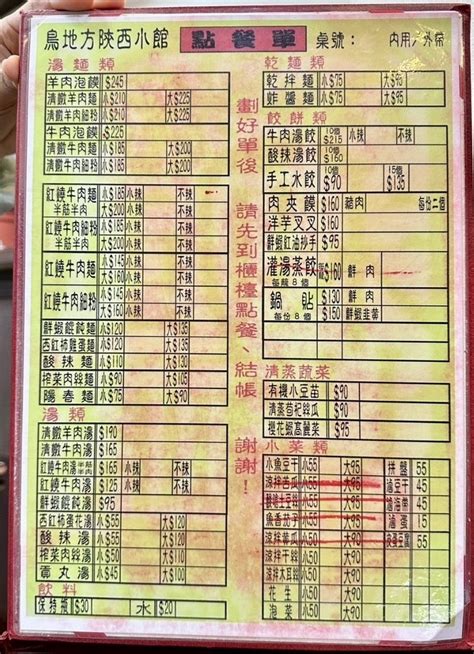 烏地方陝西小館 點餐單 桌號： 內用／外帶
湯麵類
羊肉泡饃 $245
清燉羊肉麵 小$210 大$225
清燉羊肉細粉 小$215 大$225
牛肉泡饃 $225
清燉牛肉麵 小$185 大$200
清燉牛肉細粉 小$185 大$200
紅燒牛肉麵 半筋半肉 小$185 小辣 不辣
大$200 小辣 不辣
紅燒牛肉細粉 半筋半肉 小$185 小辣 不辣
大$200 小辣 不辣
紅燒牛肉麵 小$145 小辣 不辣
大$160 小辣 不辣
紅燒牛肉細粉 小$145 小辣 不辣
大$160 小辣 不辣
鮮蝦餛飩麵 小$120 大$135
西紅柿雞蛋麵 小$120 大$135
酸辣麵 小$110 大$130
榨菜肉絲麵 小$90 大$105
陽春麵 小$70 大$75
湯類
清燉羊肉湯 $190
清燉牛肉湯 $165
紅燒牛肉湯 半筋半肉 $165 小辣 不辣
紅燒牛肉湯 $125 小辣 不辣
鮮蝦餛飩湯 $95
西紅柿蛋花湯 小$55 大$120
酸辣湯 小$55 大$120
榨菜肉絲湯 小$50 大$110
貢丸湯 小$45 大$100
飲料
保特瓶 $30 水 $20
劃好單後 請先到櫃檯點餐、結帳 謝謝！
乾麵類
乾拌麵 小$75 大$95
炸醬麵 小$75 大$95
餃餅類
牛肉湯餃 10個 $215 小辣 不辣
酸辣湯餃 10個 $160
手工水餃 10個 $90 15個 $135
肉夾饃 $160 豬肉 每份二個
洋芋叉叉 $160
鮮蝦紅油抄手 $95
灌湯蒸餃 每籠8個 $160 鮮肉
鍋貼 每份8個 $130 鮮肉
$150 鮮蝦韭黃
清蒸蔬菜
有機小豆苗 $90
清蒸苟杞絲瓜
櫻花蝦高麗菜 $95
小菜類
小魚豆干 小55 大95 拼盤 55
涼拌苦瓜 小55 大95 滷豆干 45
酸辣土豆絲 小55 大95 滷海帶 45
魚香茄子 小55 大95 滷蛋 15
涼拌黃瓜 小50 大90 皮蛋豆腐 55
涼拌干絲 小50 大90
涼拌木耳絲 小50 大90
花生 小50 大90
泡菜 小50 大90